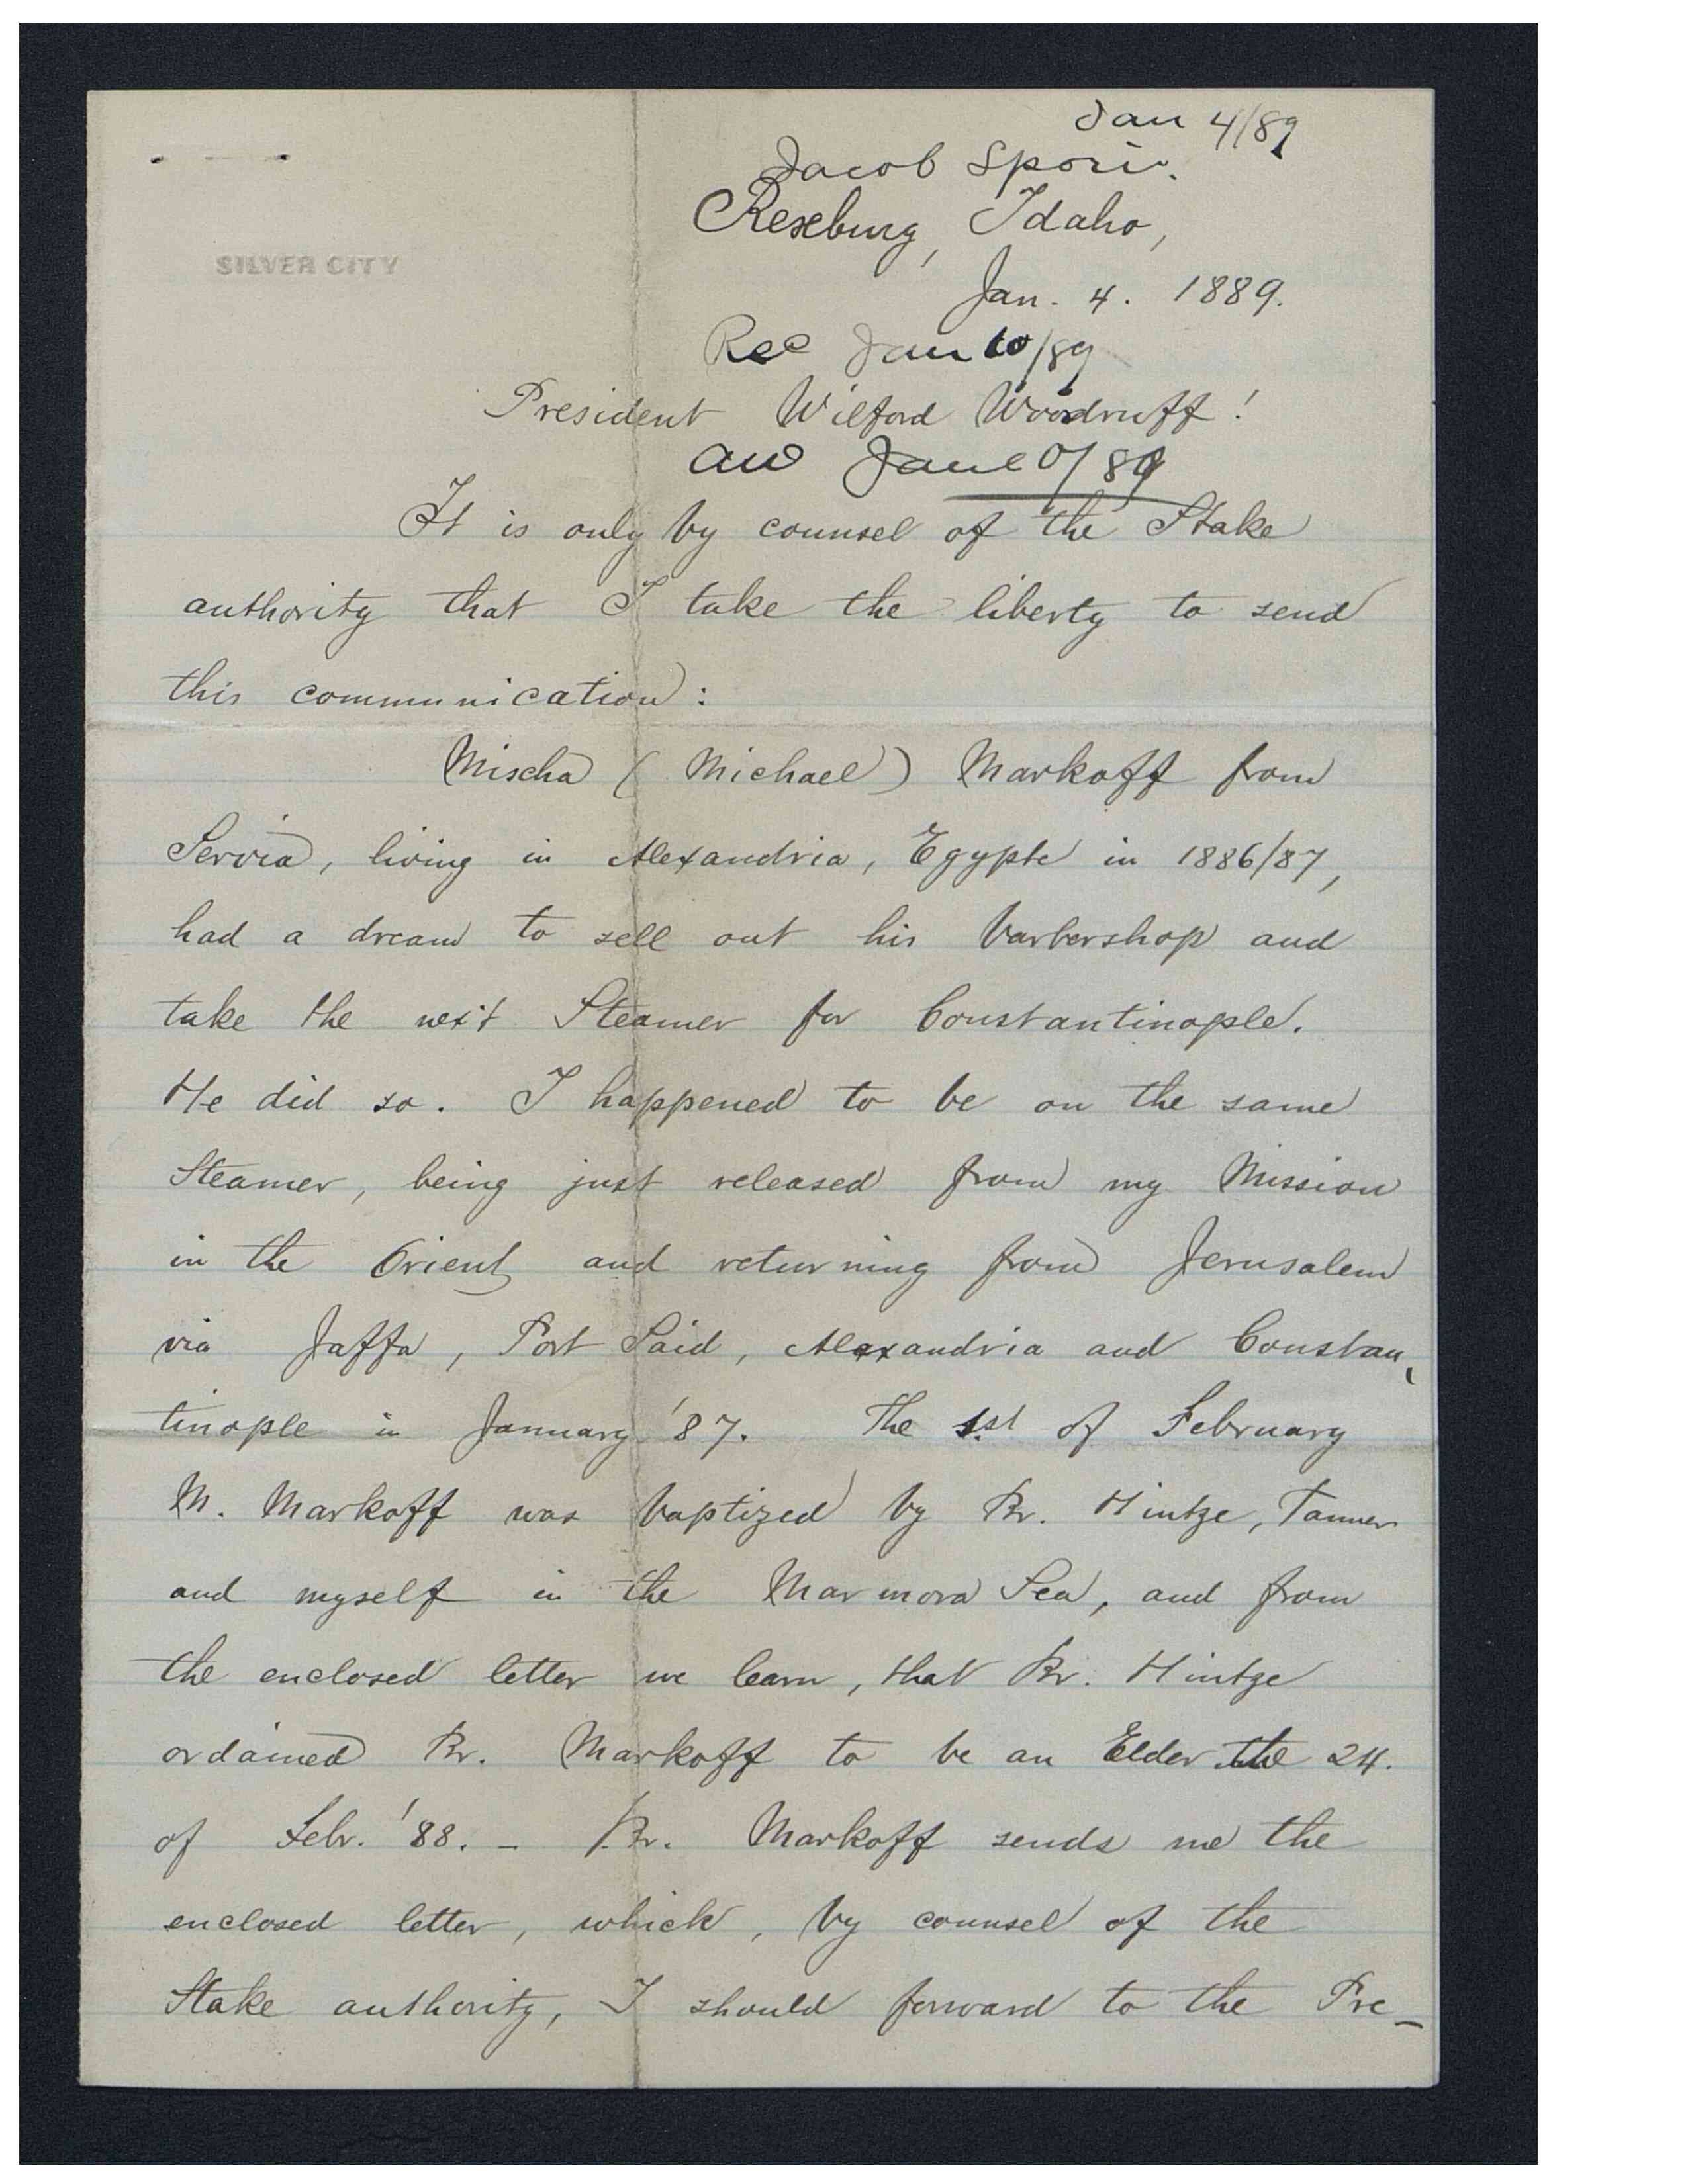 Jan 4/89
Jacob Spori.
SILVER CITY
Rexburg, Idaho,
Jan. 4. 1889.
Rec Jan 10/89
President Wilford Woodruff!
aw Jan 10/89
It is only by counsel of the Stake
authority that I take the liberty to send
this communication:
Mischa (Michael) Markoff from
Servia, living in Alexandria, Egypte in 1886/87,
had a dream to sell out his barbershop and
take the next Steamer for Constantinople.
He did so. I happened to be on the same
Steamer, being just released from my Mission
in the Orient and returning from Jerusalem
via Jaffa, Port Said, Alexandria and Constan-
tinople in January '87. The 1st of February
M. Markoff was baptized by Br. Hintze, Tanner
and myself in the Marmora Sea, and from
the enclosed letter we learn, that Br. Hintze
ordained Br. Markoff to be an Elder the 24.
of Febr. '88. - Br. Markoff sends me the
enclosed letter, which, by counsel of the
Stake authority, I should forward to the Pre-